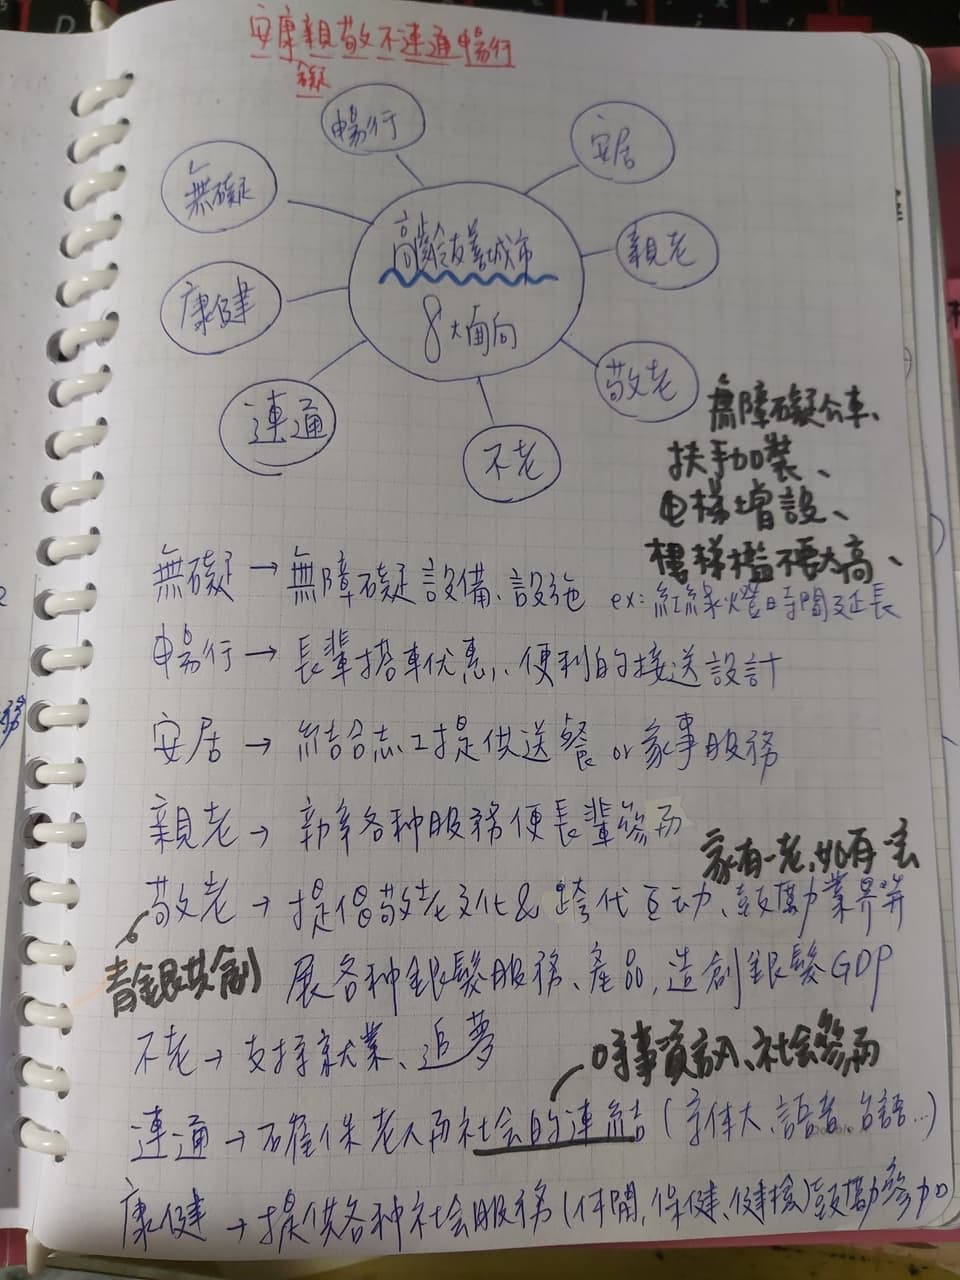 安康親敬不連通暢行
礙
暢行
安居
無礙
親老
高齡友善城市
8大面向
康健
敬老
連通
不老
無障礙公車、
扶手加裝、
電梯增設、
樓梯檻不要太高、
無礙→無障礙設備、設施 ex:紅綠燈時間延長
暢行→長輩搭車优惠、便利的接送設計
安居→結合志工提供送餐 or 家事服務
親老→新年各种服務便長輩參与
家有一老,如有一宝
敬老→提倡敬老文化&跨代互动、鼓勵業界開
青銀共創
展各种銀髮服務、產品,造創銀髮GDP
不老→支持就業、追夢
時事資訊、社会參与
連通→確保老人与社会的連結(字体大、語音、台語…)
康健→提供各种社会服務(休閒,保健、健檢)鼓勵參加